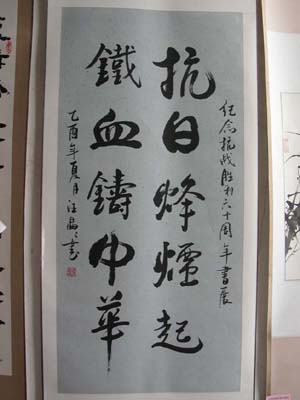 纪念抗战胜利六十周年書展
抗日烽煙起
鐵血鑄中華
乙酉年夏月汪書